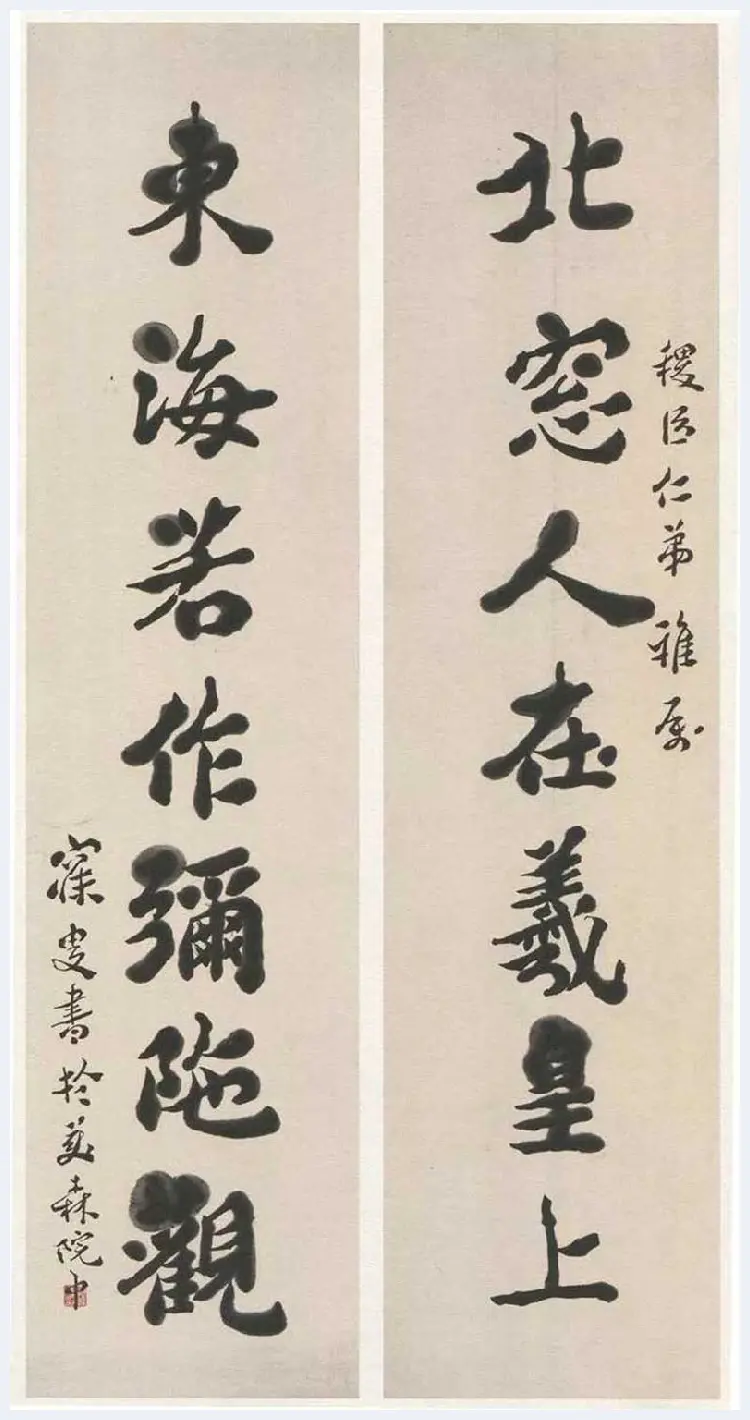 稷臣仁弟 雅属
北窓人在羲皇上
東海若作彌陁觀
寐叟書於森院中